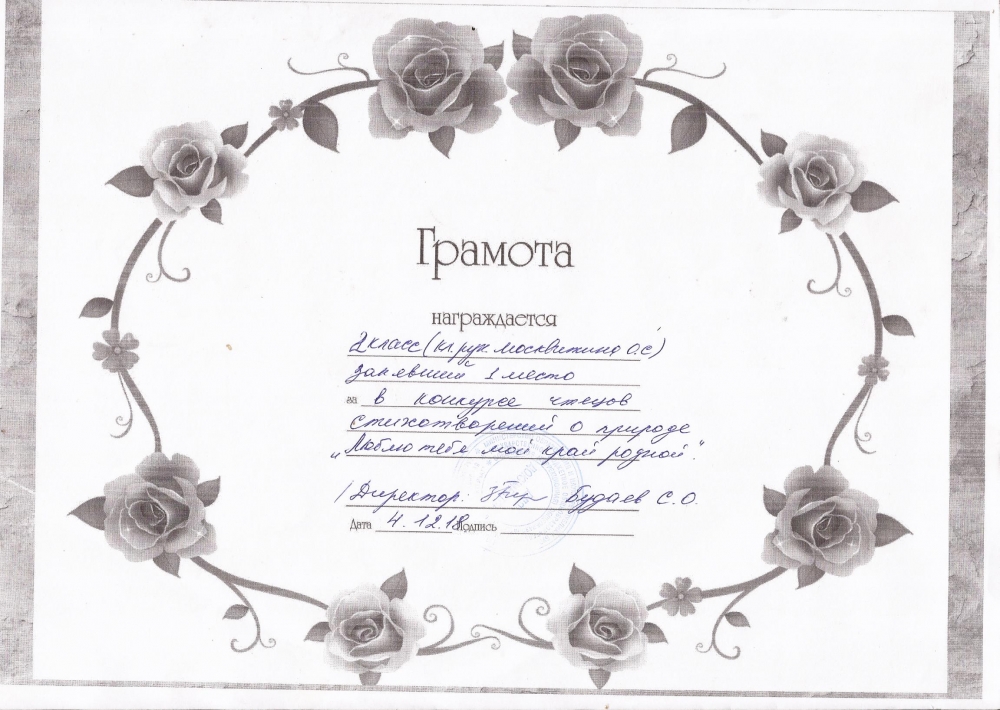 Грамота
награждается
2 класс (кл. рук. Москвитина О.С)
занявший 1 место
за в конкурсе чтецов
стихотворений о природе
„Люблю тебя мой край родной".
/ Директор: Будаев С.О.
Дата 4.12.18 Подпись